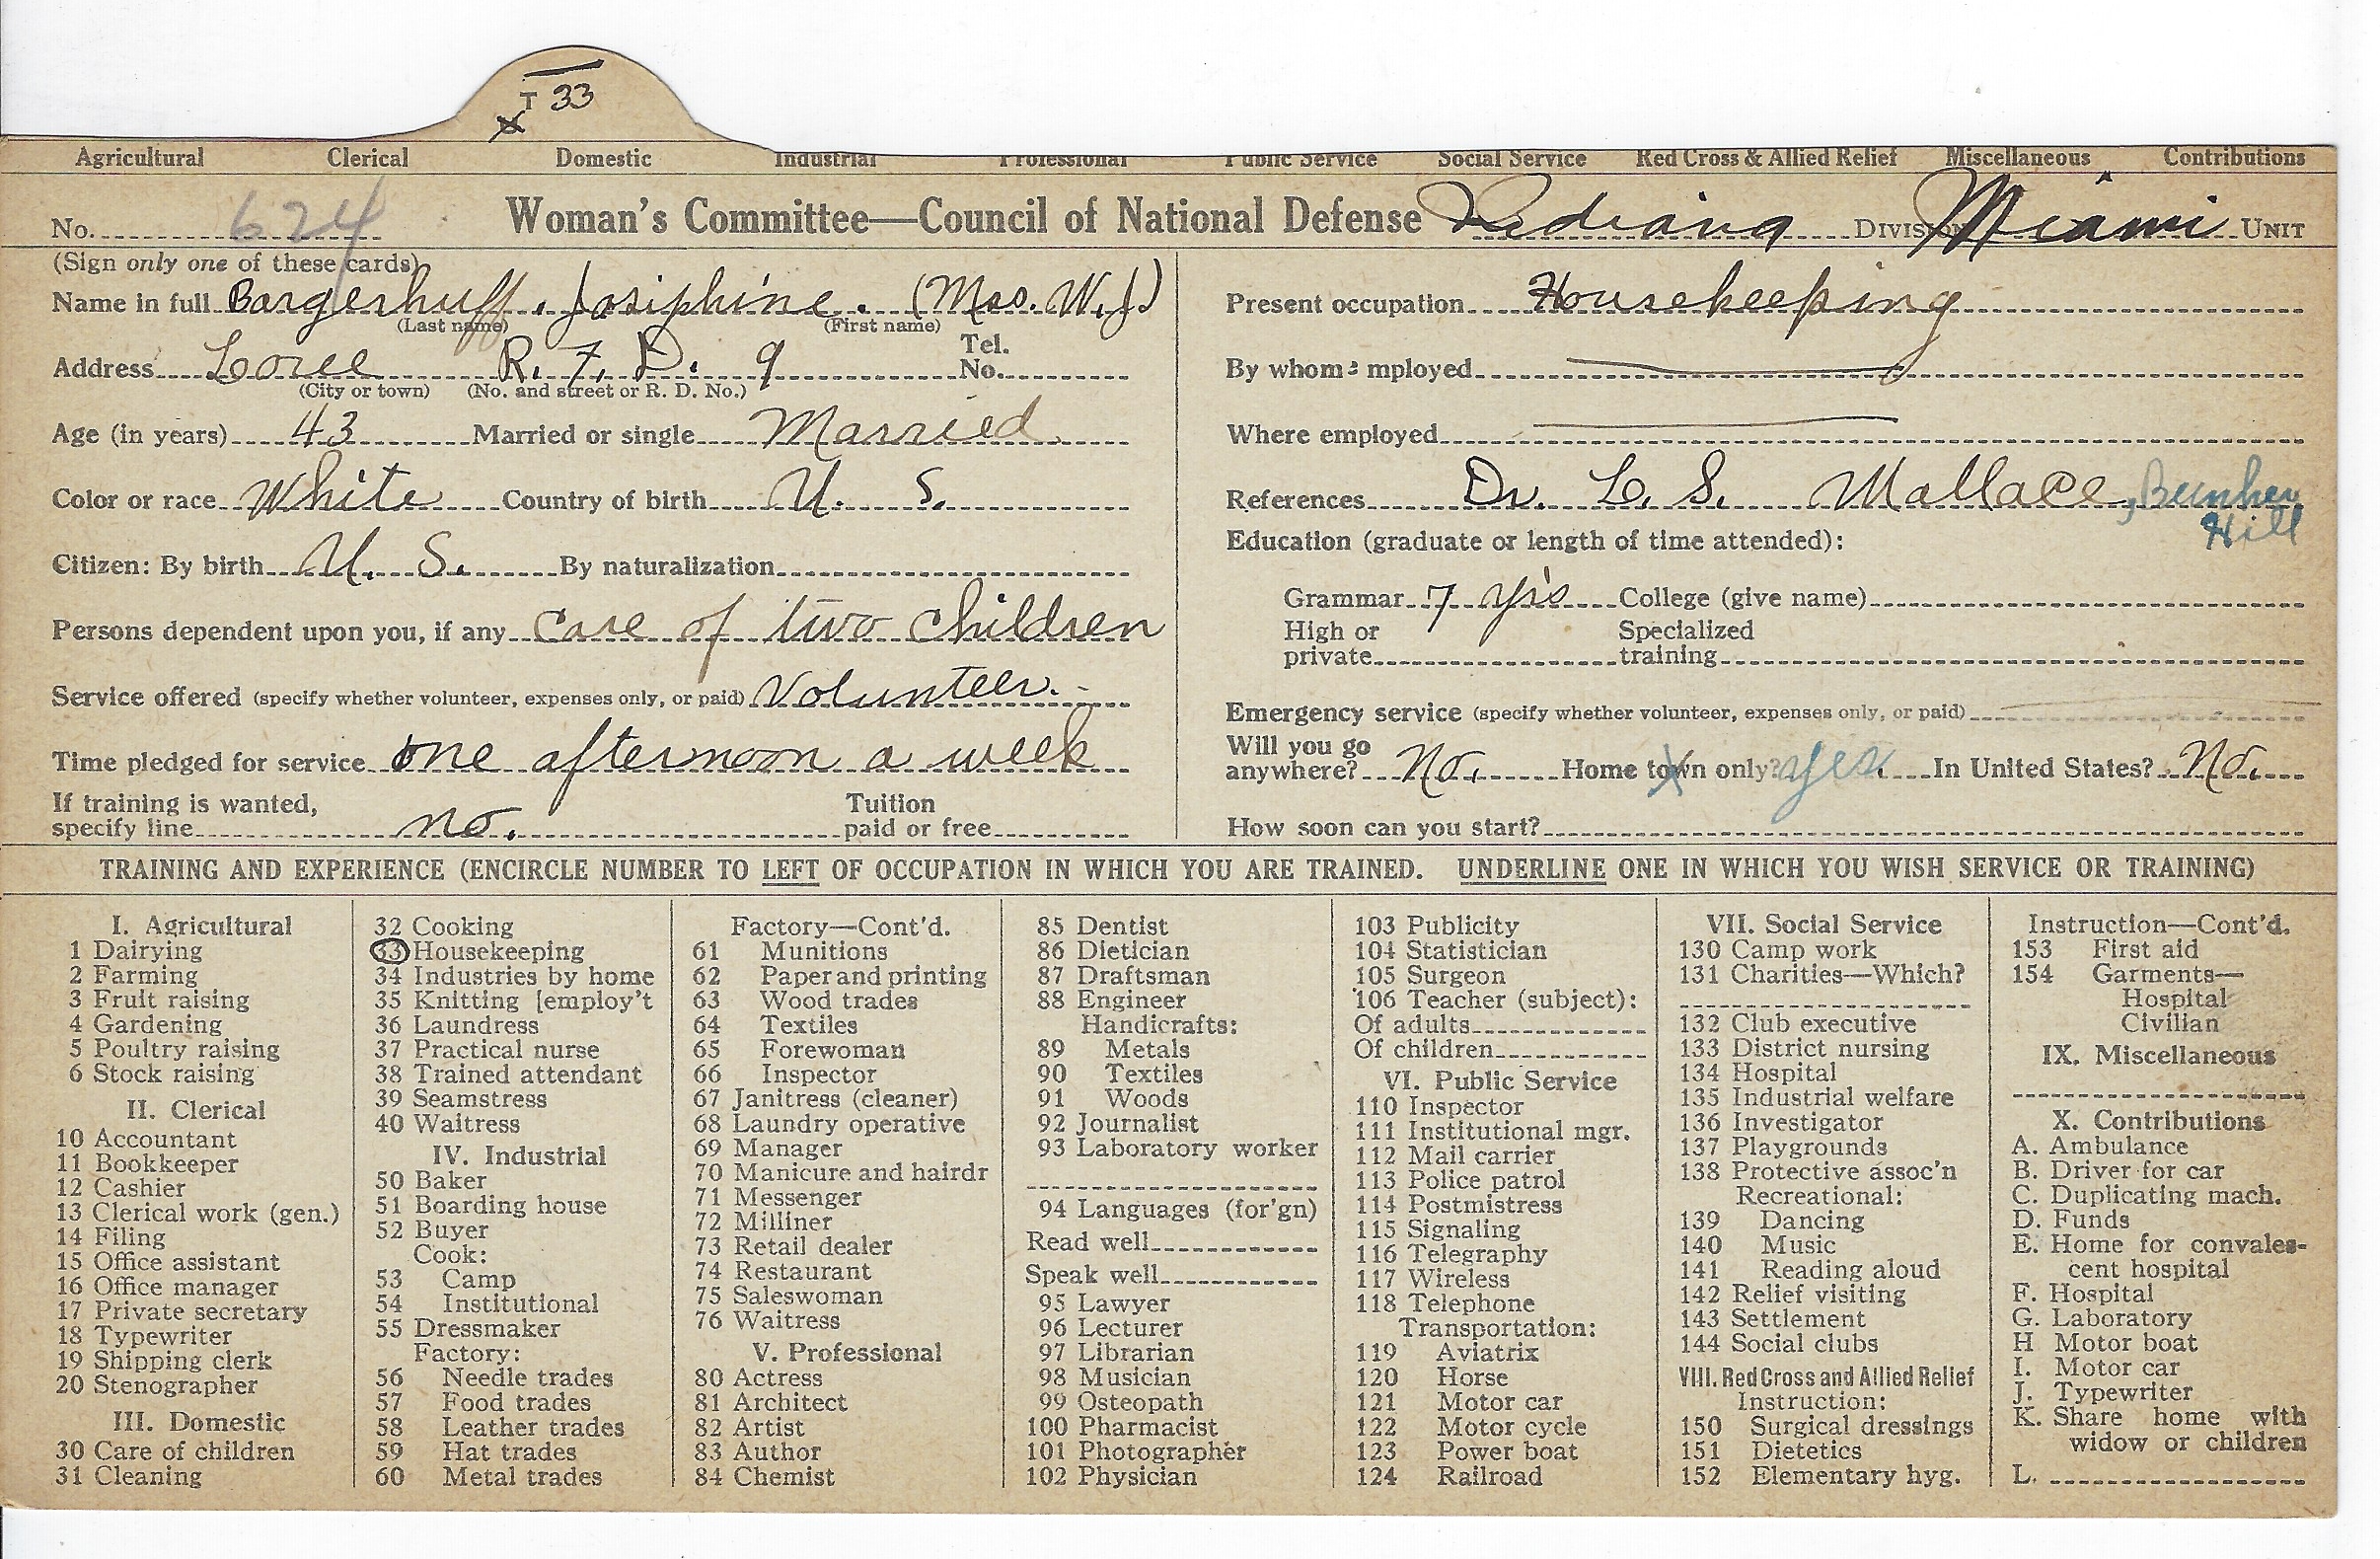 T 33
Agricultural Clerical Domestic Industrial Professional Public Service Social Service Red Cross & Allied Relief Miscellaneous Contributions
No. 624 Woman's Committee—Council of National Defense Indiana DIVISION Miami UNIT
(Sign only one of these cards)
Name in full Bargerhuff, Josiphine. (Mrs. W. J)
(Last name) (First name)
Address Loree R. F. D. 9 Tel. No.
(City or town) (No. and street or R. D. No.)
Age (in years) 43 Married or single Married
Color or race White Country of birth U. S.
Citizen: By birth U. S. By naturalization
Persons dependent upon you, if any Care of two children
Service offered (specify whether volunteer, expenses only, or paid) Volunteer.
Time pledged for service one afternoon a week
If training is wanted,
specify line no. Tuition paid or free
Present occupation Housekeeping
By whom employed
Where employed
References Dr. L. S. Wallace, Bunker
Hill
Education (graduate or length of time attended):
Grammar 7 yrs College (give name)
High or Specialized
private training
Emergency service (specify whether volunteer, expenses only, or paid)
Will you go
anywhere? No. Home town only? yes. In United States? No.
How soon can you start?
TRAINING AND EXPERIENCE (ENCIRCLE NUMBER TO LEFT OF OCCUPATION IN WHICH YOU ARE TRAINED. UNDERLINE ONE IN WHICH YOU WISH SERVICE OR TRAINING)
I. Agricultural
1 Dairying
2 Farming
3 Fruit raising
4 Gardening
5 Poultry raising
6 Stock raising
II. Clerical
10 Accountant
11 Bookkeeper
12 Cashier
13 Clerical work (gen.)
14 Filing
15 Office assistant
16 Office manager
17 Private secretary
18 Typewriter
19 Shipping clerk
20 Stenographer
III. Domestic
30 Care of children
31 Cleaning
32 Cooking
33 Housekeeping
34 Industries by home
35 Knitting [employ't
36 Laundress
37 Practical nurse
38 Trained attendant
39 Seamstress
40 Waitress
IV. Industrial
50 Baker
51 Boarding house
52 Buyer
Cook:
53 Camp
54 Institutional
55 Dressmaker
Factory:
56 Needle trades
57 Food trades
58 Leather trades
59 Hat trades
60 Metal trades
Factory—Cont'd.
61 Munitions
62 Paper and printing
63 Wood trades
64 Textiles
65 Forewoman
66 Inspector
67 Janitress (cleaner)
68 Laundry operative
69 Manager
70 Manicure and hairdr
71 Messenger
72 Milliner
73 Retail dealer
74 Restaurant
75 Saleswoman
76 Waitress
V. Professional
80 Actress
81 Architect
82 Artist
83 Author
84 Chemist
85 Dentist
86 Dietician
87 Draftsman
88 Engineer
Handicrafts:
89 Metals
90 Textiles
91 Woods
92 Journalist
93 Laboratory worker
94 Languages (for'gn)
Read well
Speak well
95 Lawyer
96 Lecturer
97 Librarian
98 Musician
99 Osteopath
100 Pharmacist
101 Photographer
102 Physician
103 Publicity
104 Statistician
105 Surgeon
106 Teacher (subject):
Of adults
Of children
VI. Public Service
110 Inspector
111 Institutional mgr.
112 Mail carrier
113 Police patrol
114 Postmistress
115 Signaling
116 Telegraphy
117 Wireless
118 Telephone
Transportation:
119 Aviatrix
120 Horse
121 Motor car
122 Motor cycle
123 Power boat
124 Railroad
VII. Social Service
130 Camp work
131 Charities—Which?
132 Club executive
133 District nursing
134 Hospital
135 Industrial welfare
136 Investigator
137 Playgrounds
138 Protective assoc'n
Recreational:
139 Dancing
140 Music
141 Reading aloud
142 Relief visiting
143 Settlement
144 Social clubs
VIII. Red Cross and Allied Relief
Instruction:
150 Surgical dressings
151 Dietetics
152 Elementary hyg.
Instruction—Cont'd.
153 First aid
154 Garments—
Hospital
Civilian
IX. Miscellaneous
X. Contributions
A. Ambulance
B. Driver for car
C. Duplicating mach.
D. Funds
E. Home for convales-
cent hospital
F. Hospital
G. Laboratory
H Motor boat
I. Motor car
J. Typewriter
K. Share home with
widow or children
L.